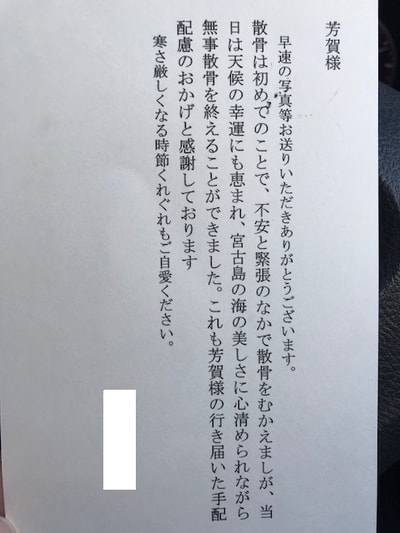 芳賀様
早速の写真等お送りいただきありがとうございます。
散骨は初めてのことで、不安と緊張のなかで散骨をむかえましが、当
日は天候の幸運にも恵まれ、宮古島の海の美しさに心清められながら
無事散骨を終えることができました。これも芳賀様の行き届いた手配
配慮のおかげと感謝しております
寒さ厳しくなる時節くれぐれもご自愛ください。